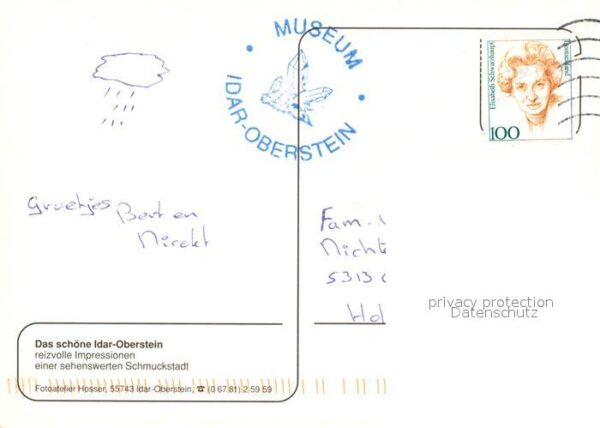 MUSEUM
IDAR-OBERSTEIN
Elisabeth Schwarzhaupt
Deutschland
100
Groetjes Bert en
Fam.
Nicht
5313
Hol
privacy protection
Datenschutz
Das schöne Idar-Oberstein
reizvolle Impressionen
einer sehenswerten Schmuckstadt
Fotoatelier Hosser, 55743 Idar-Oberstein, ☎ (0 67 81) 2 59 59